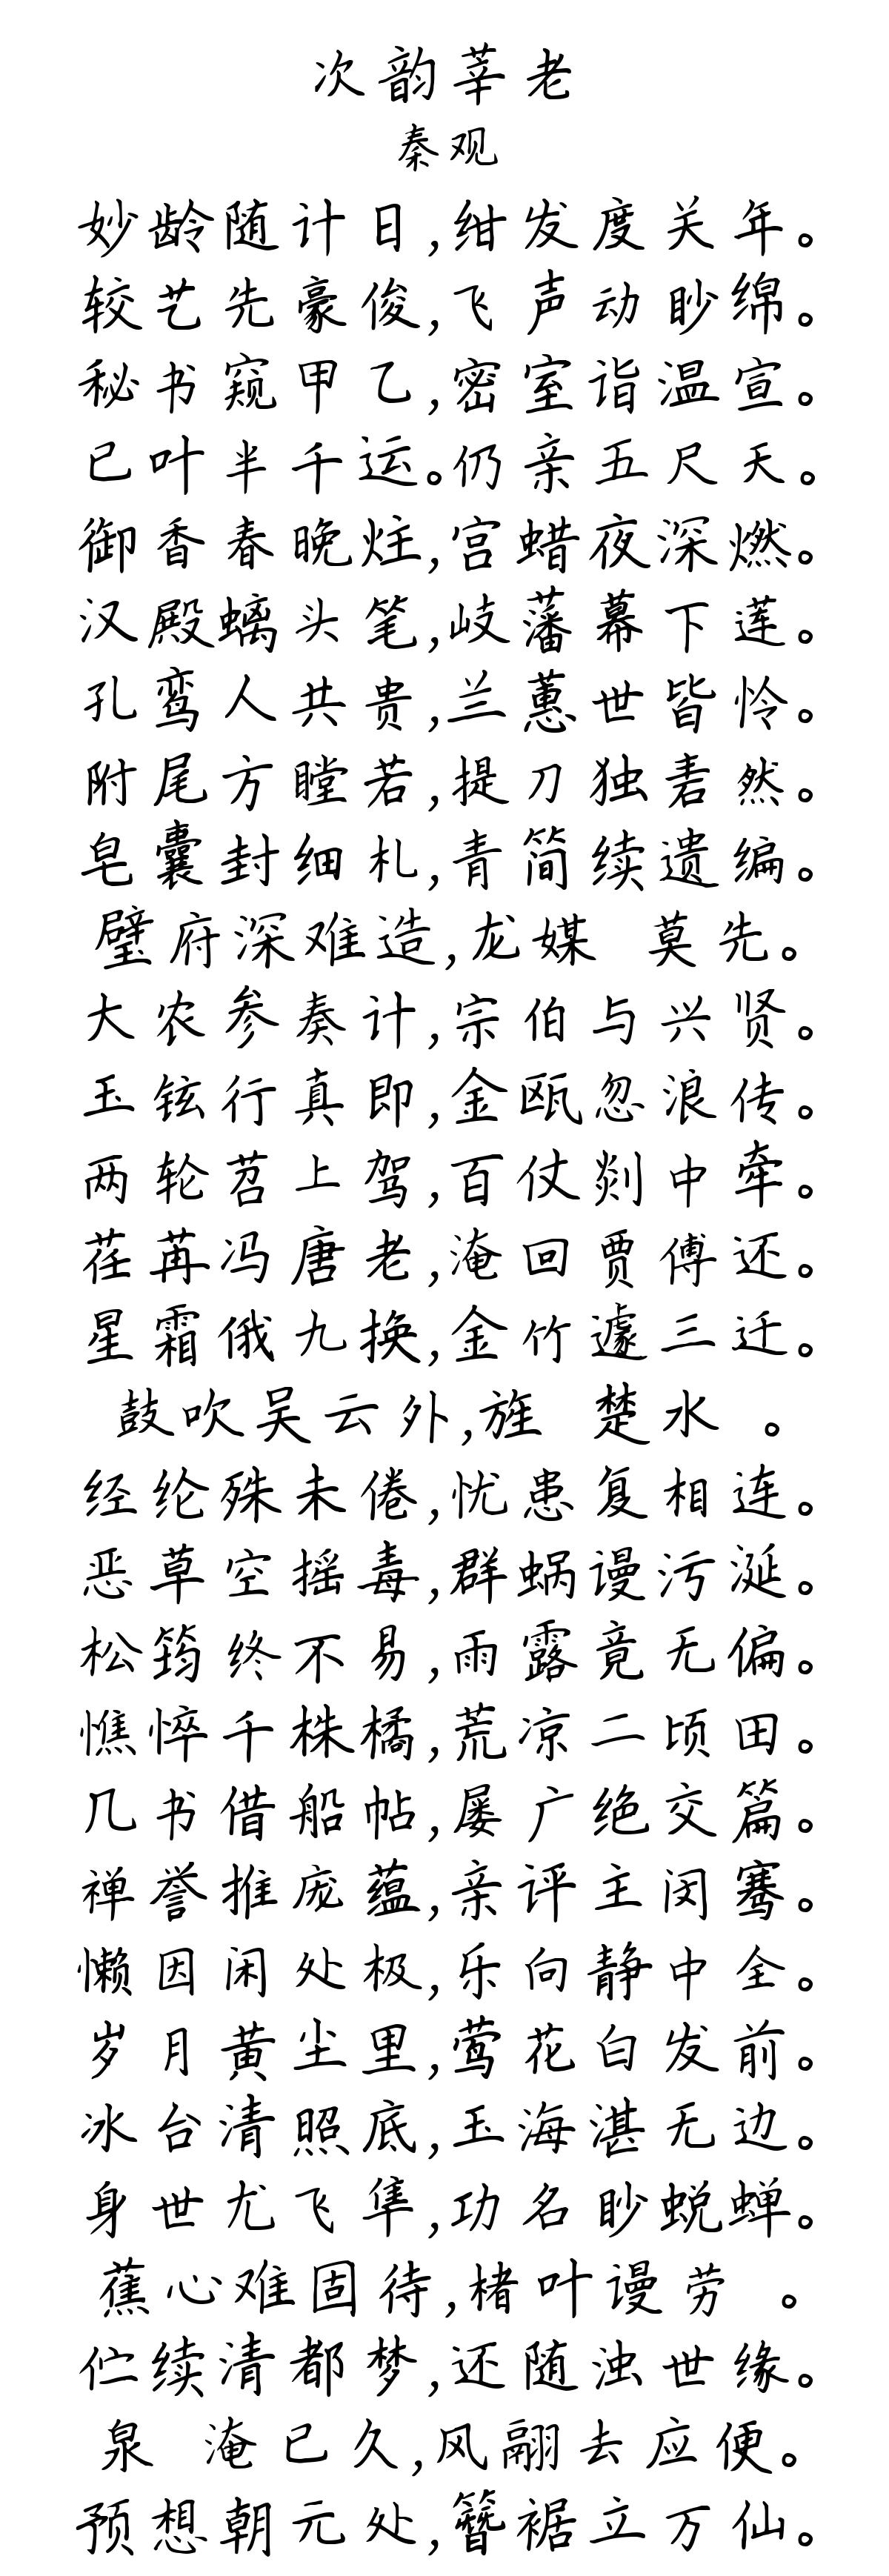 次韵莘老
秦观
妙龄随计日,绀发度关年。
较艺先豪俊,飞声动眇绵。
秘书窥甲乙,密室诣温宣。
已叶半千运。仍亲五尺天。
御香春晚炷,宫蜡夜深燃。
汉殿螭头笔,岐藩幕下莲。
孔鸾人共贵,兰蕙世皆怜。
附尾方瞠若,提刀独砉然。
皂囊封细札,青简续遗编。
璧府深难造,龙媒 莫先。
大农参奏计,宗伯与兴贤。
玉铉行真即,金瓯忽浪传。
两轮苕上驾,百仗剡中牵。
荏苒冯唐老,淹回贾傅还。
星霜俄九换,金竹遽三迁。
鼓吹吴云外,旌 楚水 。
经纶殊未倦,忧患复相连。
恶草空摇毒,群蜗谩污涎。
松筠终不易,雨露竟无偏。
憔悴千株橘,荒凉二顷田。
几书借船帖,屡广绝交篇。
禅誉推庞蕴,亲评主闵骞。
懒因闲处极,乐向静中全。
岁月黄尘里,莺花白发前。
冰台清照底,玉海湛无边。
身世尤飞隼,功名眇蜕蝉。
蕉心难固待,楮叶谩劳 。
伫续清都梦,还随浊世缘。
泉 淹已久,风翮去应便。
预想朝元处,簪裾立万仙。